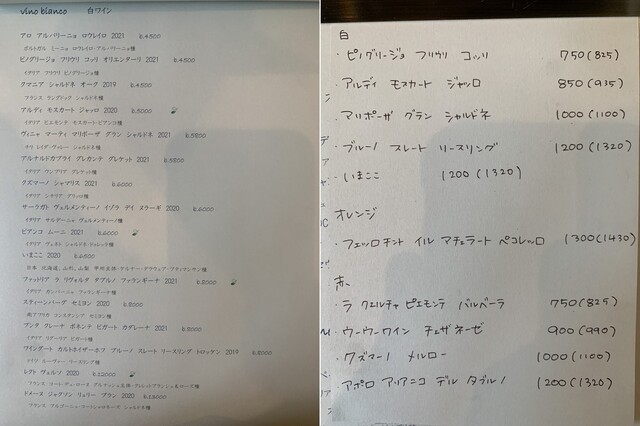 vino bianco 白ワイン
アロ アルバリーニョ ロウレイロ 2021 b.4500
ポルトガル ミーニョ ロウレイロ・アルバリーニョ種
ピノグリージョ フリウリ コッリ オリエンターリ 2021 b.4500
イタリア フリウリ ピノグリージョ種
タマニア シャルドネ オーク 2019 b.4500
フランス ラングドック シャルドネ種
アルディ モスカート ジャッロ 2020 b.5000
イタリア ピエモンテ モスカート・ビアンコ種
ヴィニャ マーティ マリポーザ グラン シャルドネ 2021
チリ レイダ・ヴァレー シャルドネ種
アルナルドカプライ グレカンテ グレケット 2021
イタリア ウンブリア グレケット種
クズマーノ シャマリス 2021 b.6000
イタリア シチリア
サーラガト ヴェルメンティーノ イゾラ デイ ヌラーギ 2020 b.6000
イタリア サルデーニャ ヴェルメンティーノ種
ビアンコ ムーニ 2021 b.6000
イタリア ヴェネト シャルドネ・ドゥレッラ種
いまここ 2020
日本 北海道、山形、山梨
ファットリア ラ リヴォルタ タブルノ ファランギーナ 2021
イタリア カンパーニャ ファランギーナ種
スティーンバーグ セミヨン 2020
南アフリカ コンスタンシア セミヨン種
プンタ クレーナ ポネンテ ピガート カダレーナ 2021
イタリア リグーリア ピガート種
ヴァインゲート カルトホイザーホフ ブルーノ スレート リースリング トロッケン 2019
ドイツ ルーヴァー リースリング種
レクト ヴェルソ 2020 b.12000
フランス
ドメーヌ ジャクソン リュリー ブラン 2020 b.13000
フランス ブルゴーニュ シャルドネ種
白
・ピノグリージョ フリウリ コッリ 750(825)
・アルディ モスカート ジャッロ 850(935)
・マリポーザ グラン シャルドネ 1000(1100)
・ブルーノ スレート リースリング 1200(1320)
・いまここ 1200(1320)
オレンジ
・フェッロチント イル マチェラート ペコレッロ 1300(1430)
赤
・ラ クェルチャ ピエモンテ バルベーラ 750(825)
・ウーウーワイン チェザネーゼ 900(990)
・クズマーノ メルロー 1000(1100)
・アポロ アリアニコ デル タブルノ 1200(1320)